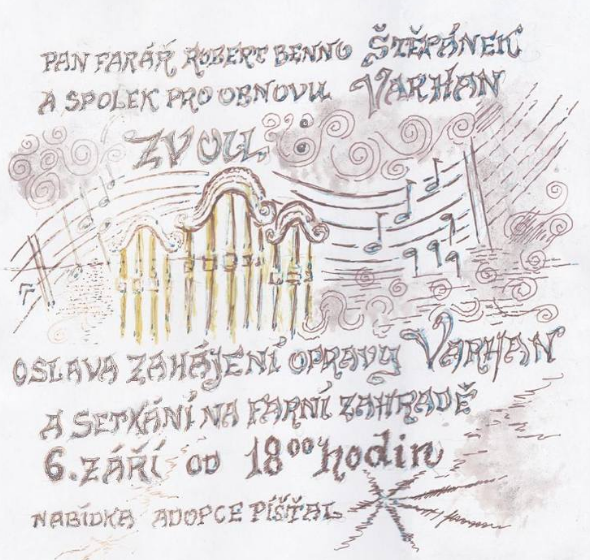 PAN FARÁŘ ROBERT BENNO ŠTĚPÁNEK
A SPOLEK PRO OBNOVU VARHAN
ZVOU:
OSLAVA ZAHÁJENÍ OPRAVY VARHAN
A SETKÁNÍ NA FARNÍ ZAHRADĚ
6. ZÁŘÍ OD 18⁰⁰ hodin
NABÍDKA ADOPCE PÍŠŤAL